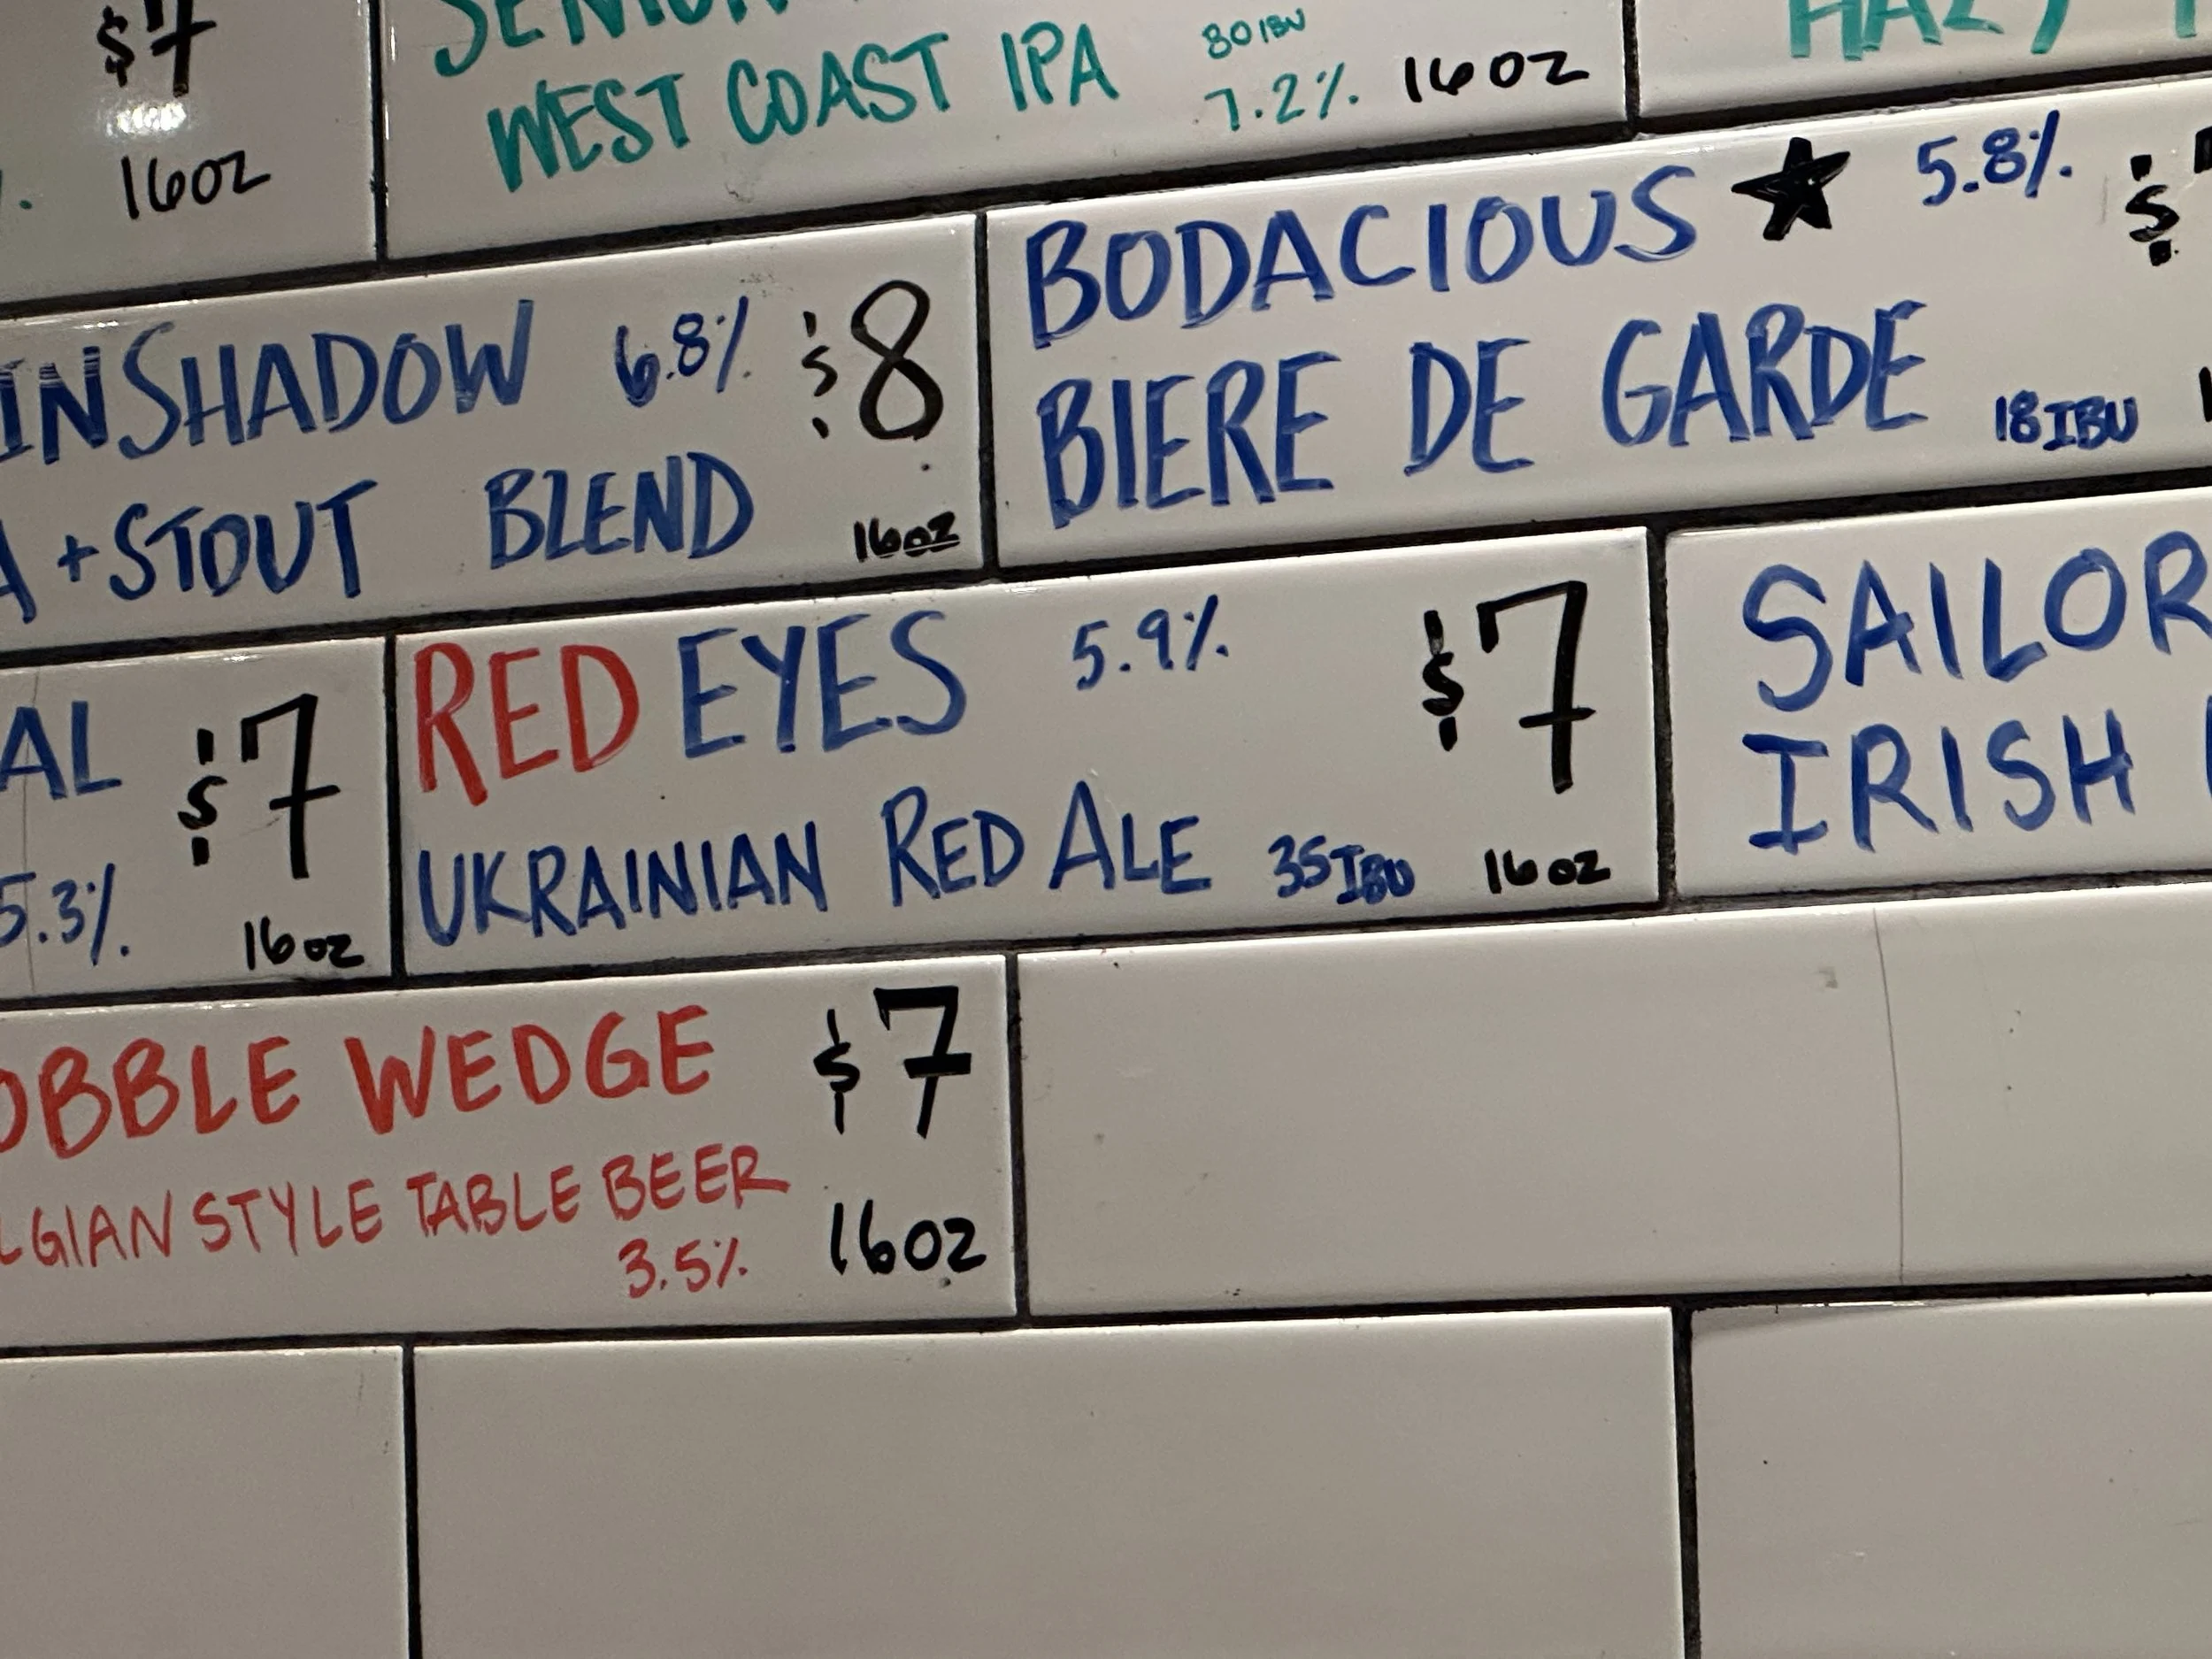 $7
16OZ
WEST COAST IPA 80 IBU
7.2% 16OZ
INSHADOW 6.8% $8
+STOUT BLEND 16oz
BODACIOUS ★ 5.8% $
BIERE DE GARDE 18IBU
AL $7
5.3% 16oz
RED EYES 5.9% $7
UKRAINIAN RED ALE 35IBU 16oz
SAILOR
IRISH
OBBLE WEDGE $7
LGIAN STYLE TABLE BEER
3.5% 16oz